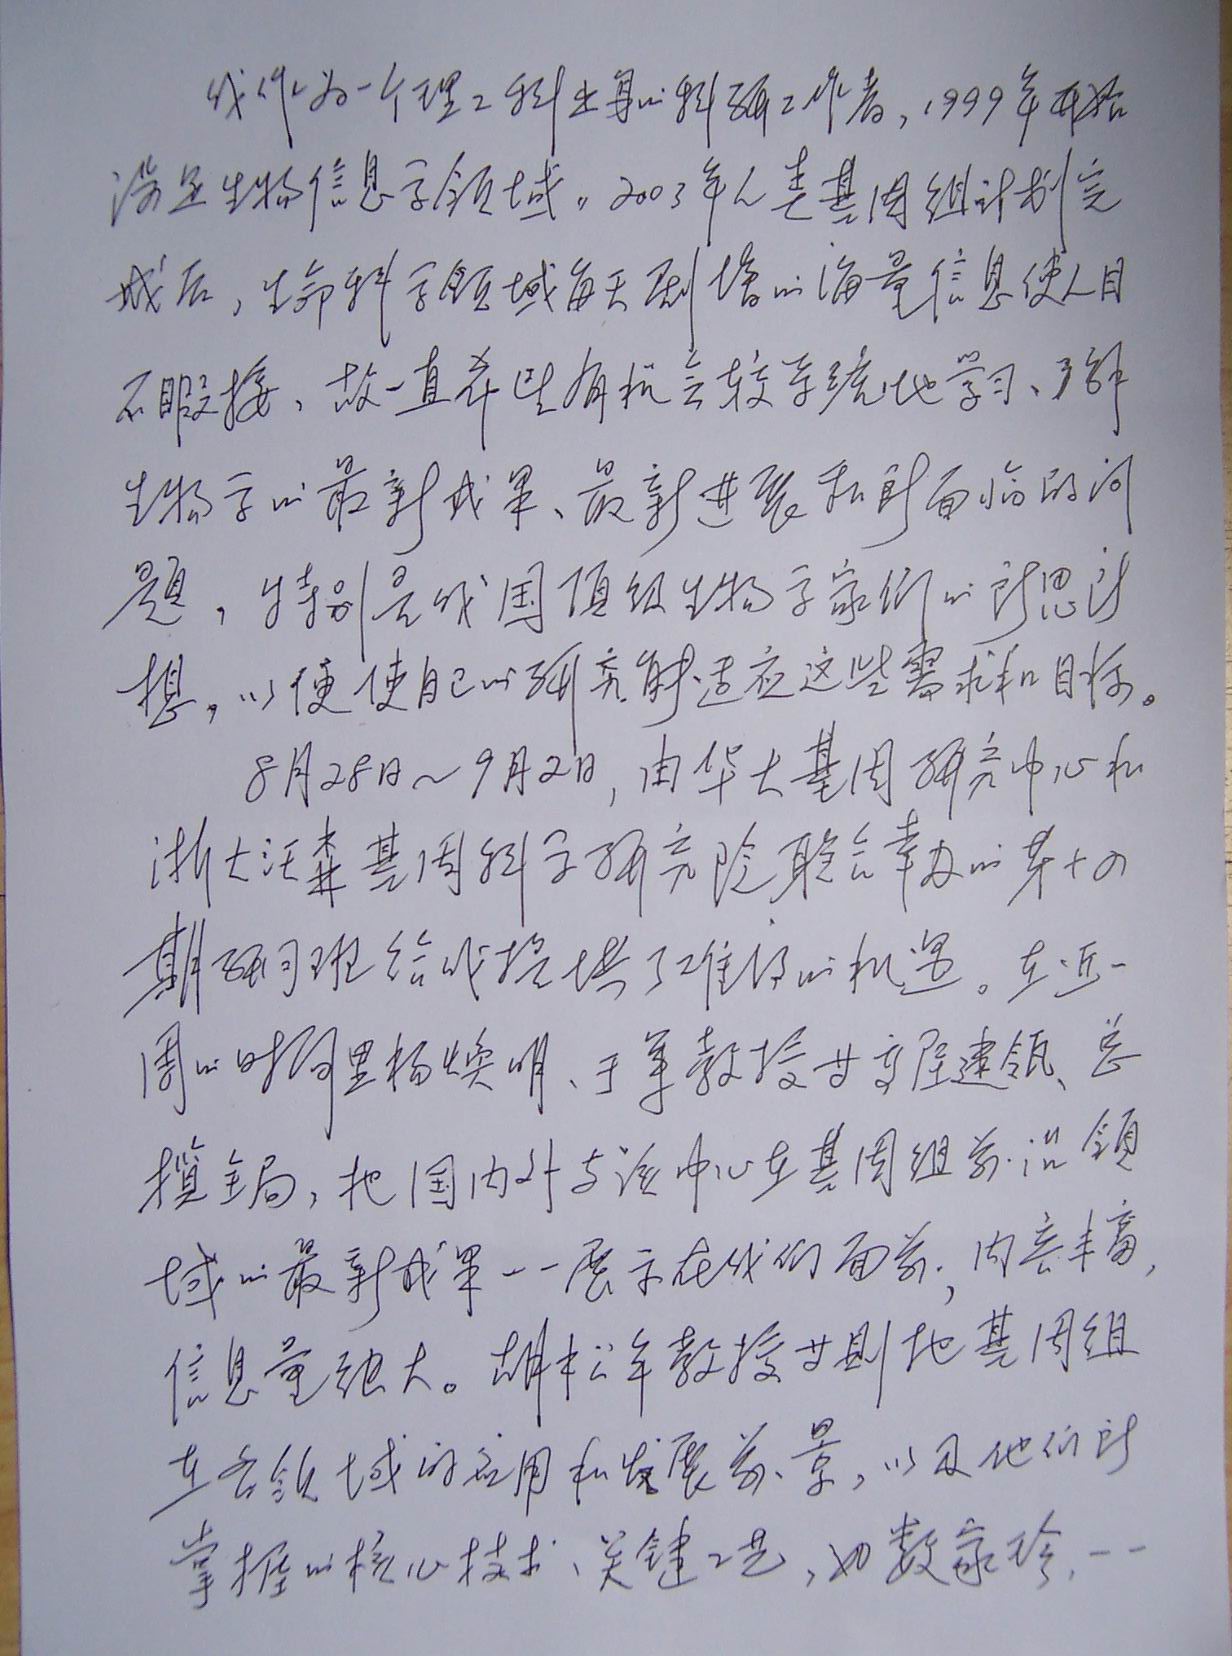 我作为一个理工科出身的科研工作者，1999年开始
涉足生物信息学领域。2003年人类基因组计划完
成后，生命科学领域每天剧增的海量信息使人目
不暇接，故一直希望有机会较系统地学习、了解
生物学的最新成果、最新进展和所面临的问
题，特别是我国顶级生物学家们的所思所
想，以便使自己的研究能适应这些需求和目标。
8月28日～9月2日，由华大基因研究中心和
浙大沃森基因科学研究院联合举办的第十四
期研习班给我提供了难得的机遇。在近一
周的时间里杨焕明、于军教授高屋建瓴、总
揽全局，把国内外与该中心在基因组前沿领
域的最新成果一一展示在我们面前，内容丰富，
信息量强大。胡松年教授则把基因组
在各领域的应用和发展前景，以及他们所
掌握的核心技术、关键工艺，如数家珍，一一